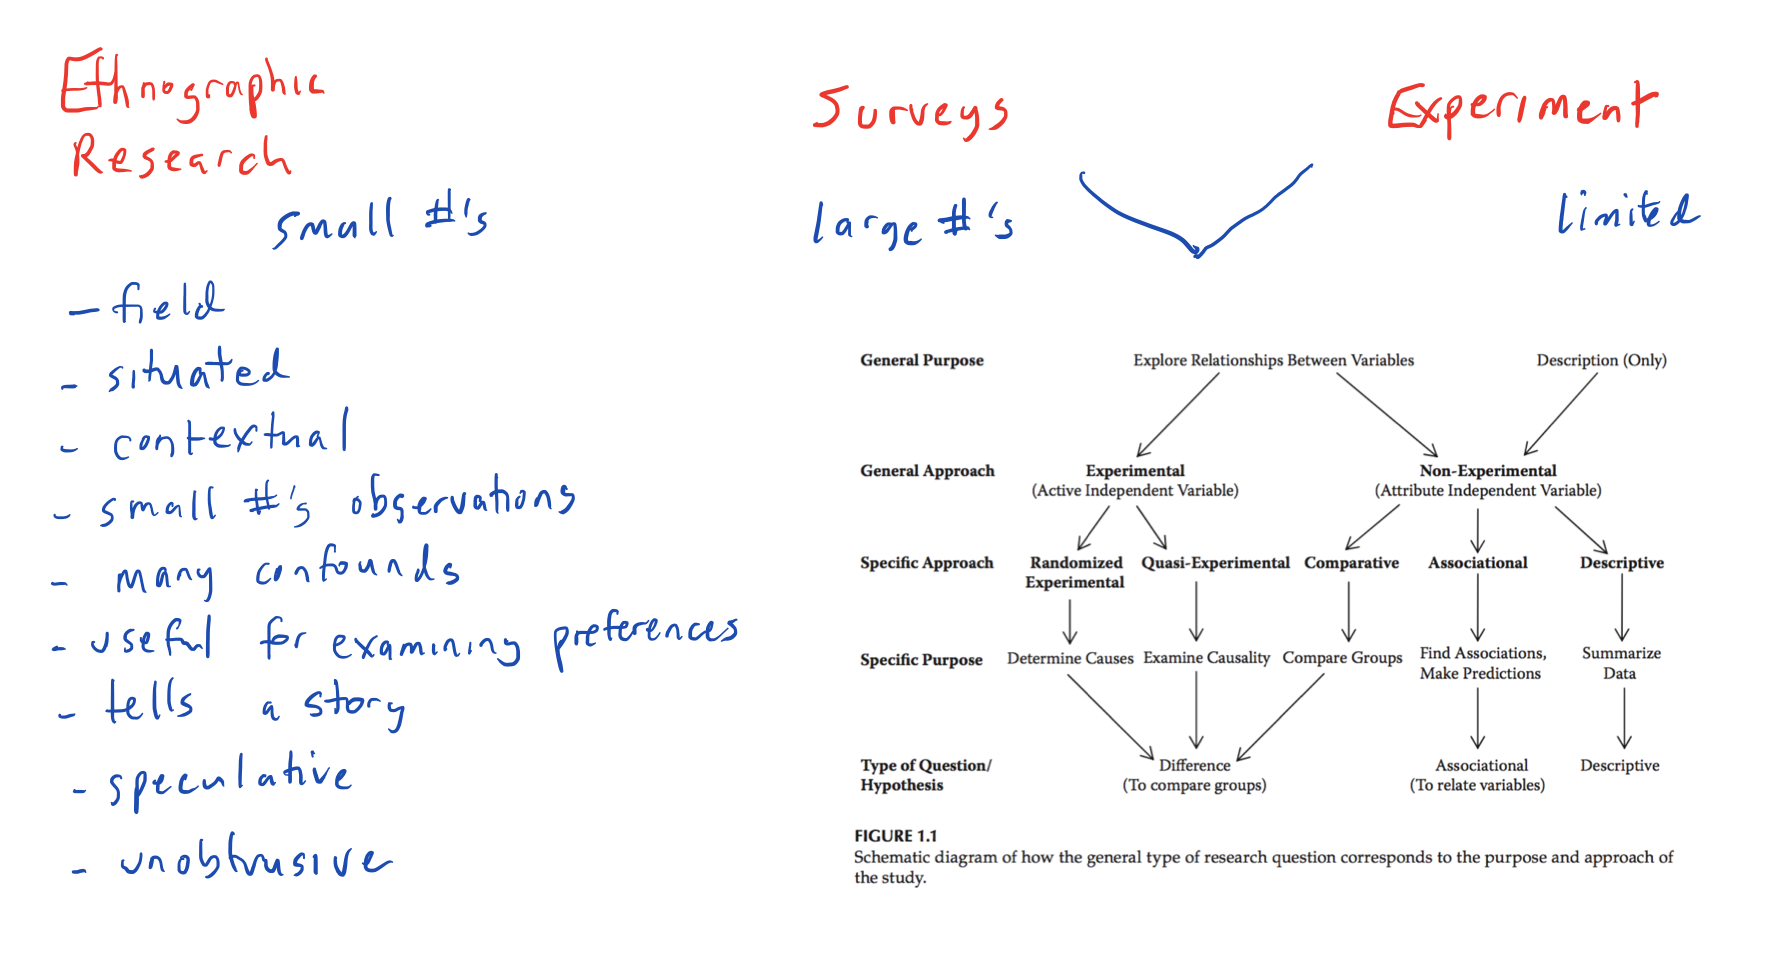 Ethnographic
Research
small #'s
- field
- situated
- contextual
- small #'s observations
- many confounds
- useful for examining preferences
- tells a story
- speculative
- unobtrusive
Surveys
large #'s
Experiment
limited
General Purpose Explore Relationships Between Variables Description (Only)
General Approach Experimental Non-Experimental
(Active Independent Variable) (Attribute Independent Variable)
Specific Approach Randomized Quasi-Experimental Comparative Associational Descriptive
Experimental
Specific Purpose Determine Causes Examine Causality Compare Groups Find Associations, Summarize
Make Predictions Data
Type of Question/ Difference Associational Descriptive
Hypothesis (To compare groups) (To relate variables)
FIGURE 1.1
Schematic diagram of how the general type of research question corresponds to the purpose and approach of
the study.